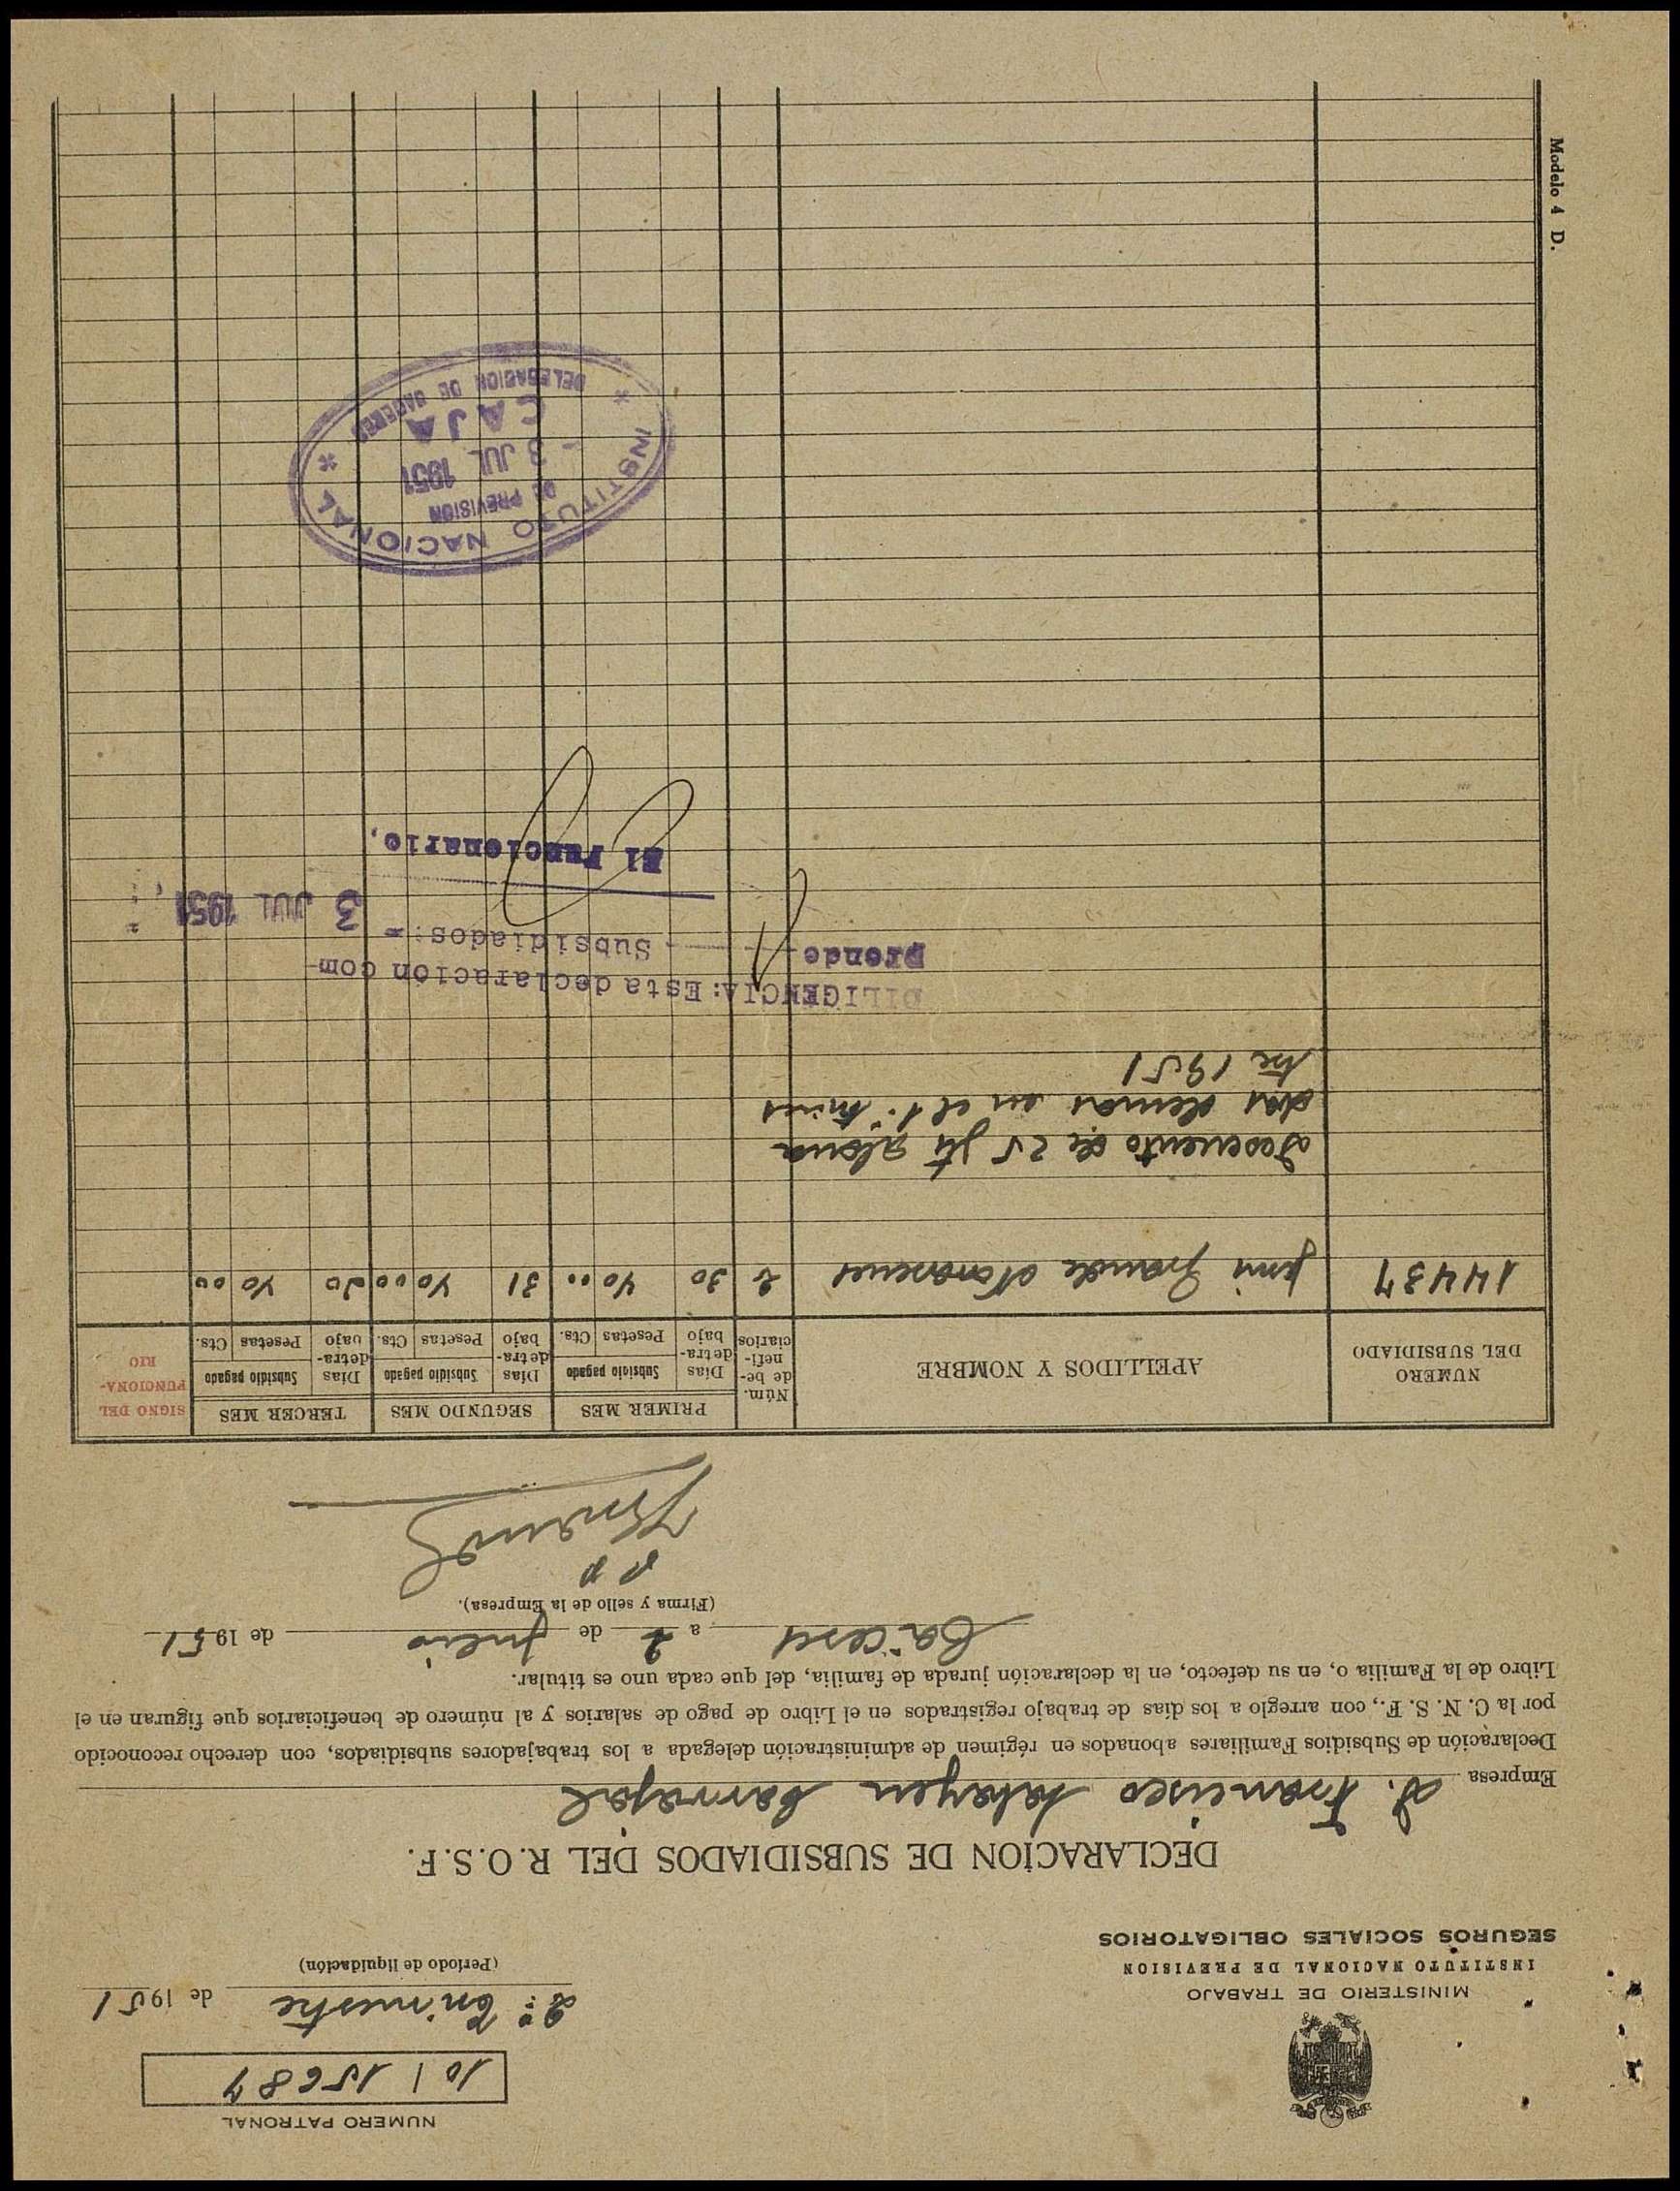 NUMERO PATRONAL
10 | 15687
MINISTERIO DE TRABAJO
INSTITUTO NACIONAL DE PREVISION
SEGUROS SOCIALES OBLIGATORIOS
2º Trimestre de 1951
(Período de liquidación)
DECLARACION DE SUBSIDIADOS DEL R.O.S.F.
Empresa D. Francisco Carvajal
Declaración de Subsidios Familiares abonados en régimen de administración delegada a los trabajadores subsidiados, con derecho reconocido
por la C. N. S. F., con arreglo a los días de trabajo registrados en el Libro de pago de salarios y al número de beneficiarios que figuran en el
Libro de la Familia o, en su defecto, en la declaración jurada de familia, del que cada uno es titular.
Cáceres a 2 de julio de 1951
(Firma y sello de la Empresa).
P P
NUMERO DEL SUBSIDIADO
APELLIDOS Y NOMBRE
Núm. de be- nefi- ciarios
PRIMER MES
SEGUNDO MES
TERCER MES
SIGNO DEL FUNCIONA- RIO
Días detra- bajo Subsidio pagado Pesetas Cts.
Días detra- bajo Subsidio pagado Pesetas Cts.
Días detra- bajo Subsidio pagado Pesetas Cts.
14437 Grande 2 30 40 00 31 40 00 30 40 00
descuento de 25 pts abona
das demas en el 1º trimes
tre 1951
DILIGENCIA: Esta declaración com-
prende 1 Subsidiados:=
3 JUL 1951
El Funcionario,
INSTITUTO NACIONAL
DE PREVISION
- 3 JUL 1951
CAJA
DELEGACION DE CACERES
Modelo 4 D.